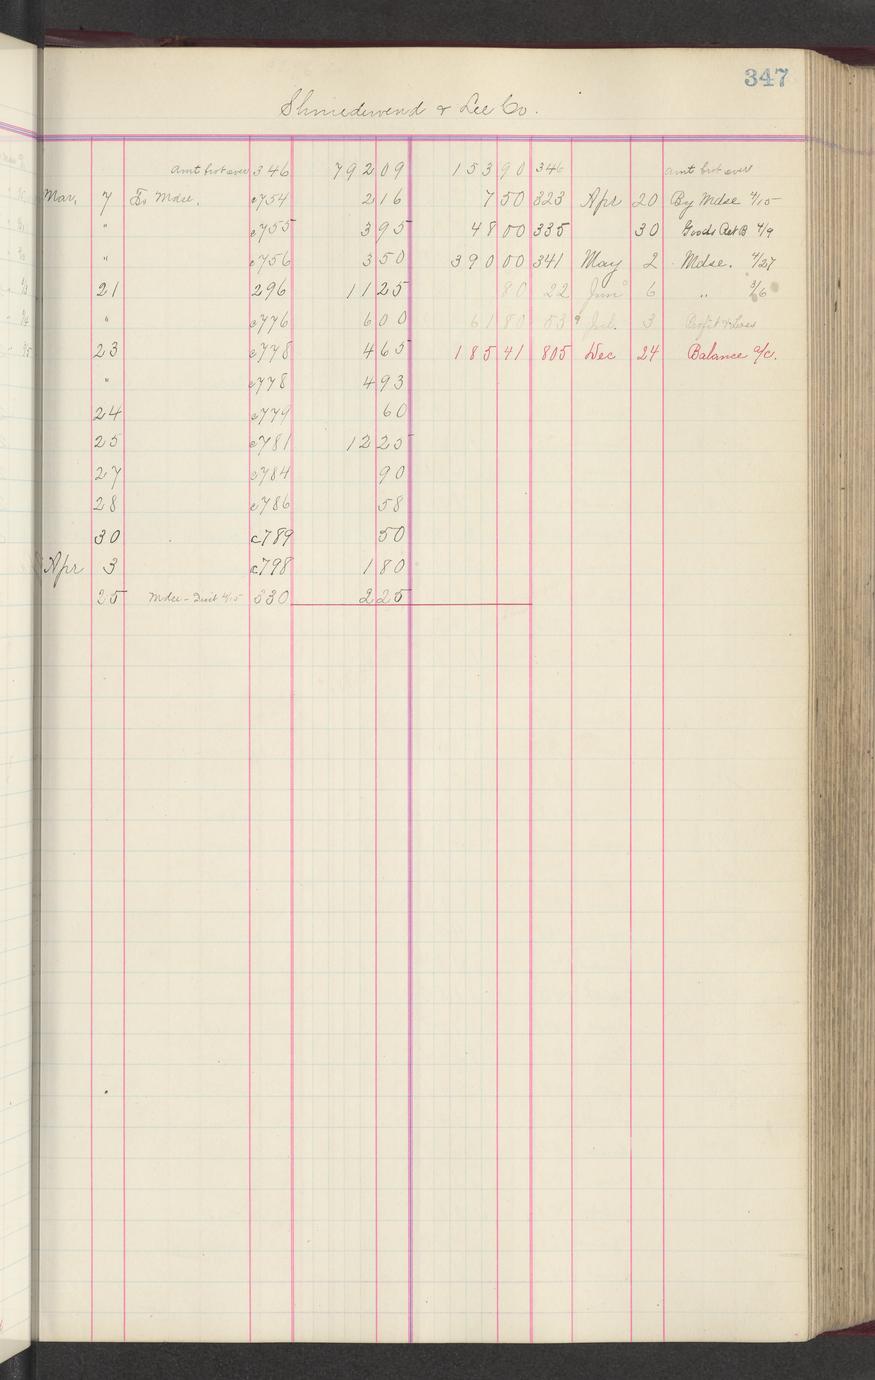 347
Shniedewend & Lee Co.
amt brot over 346 792 09 153 90 346 amt brot over
Mar. 7 To Mdse. c754 2 16 7 50 323 Apr 20 By Mdse 4/15
" c755 3 95 48 00 335 30 Goods Ret B 4/9
" c756 3 50 390 00 341 May 2 Mdse. 4/27
21 296 11 25 80 22 June 6 " 3/6
" c776 6 00 61 80 53 Jul. 3 Profit & Loss
23 c778 4 65 185 41 805 Dec 24 Balance a/c.
" c778 4 93
24 c779 60
25 c781 12 25
27 c784 90
28 c786 58
30 c789 50
Apr 3 c798 1 80
25 Mdse - 4/15 330 2 25